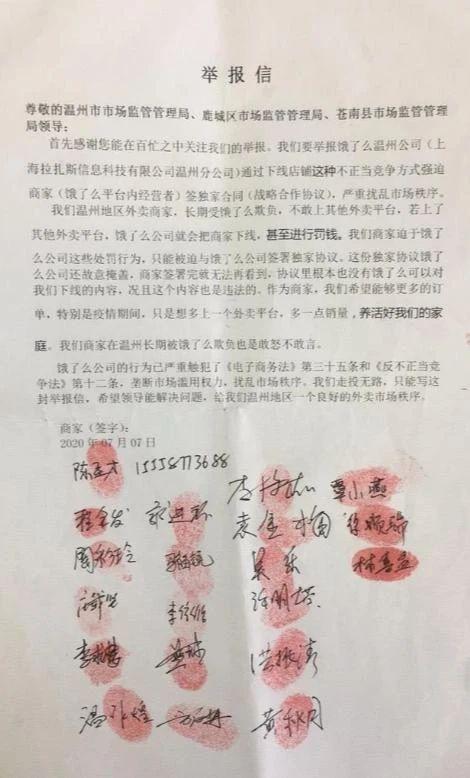 举报信
尊敬的温州市市场监管管理局、鹿城区市场监管管理局、苍南县市场监管管理
局领导：
首先感谢您能在百忙之中关注我们的举报。我们要举报饿了么温州公司（上
海拉扎斯信息科技有限公司温州分公司）通过下线店铺这种不正当竞争方式强迫
商家（饿了么平台内经营者）签独家合同（战略合作协议），严重扰乱市场秩序。
我们温州地区外卖商家，长期受饿了么欺负，不敢上其他外卖平台，若上了
其他外卖平台，饿了么公司就会把商家下线，甚至进行罚钱。我们商家迫于饿了
么公司这些处罚行为，只能被迫与饿了么公司签署独家协议。这份独家协议饿了
么公司还故意掩盖，商家签署完就无法再看到，协议里根本也没有饿了么可以对
我们下线的内容，况且这个内容也是违法的。作为商家，我们希望能够更多的订
单，特别是疫情期间，只是想多上一个外卖平台，多一点销量，养活好我们的家
庭。我们商家在温州长期被饿了么欺负也是敢怒不敢言。
饿了么公司的行为已严重触犯了《电子商务法》第三十五条和《反不正当竞
争法》第十二条，垄断市场滥用权力，扰乱市场秩序。我们走投无路，只能写这
封举报信，希望领导能解决问题，给我们温州地区一个良好的外卖市场秩序。
商家（签字）：
2020年07月07日
15558773688
覃小燕
洪振涛
黄秋月